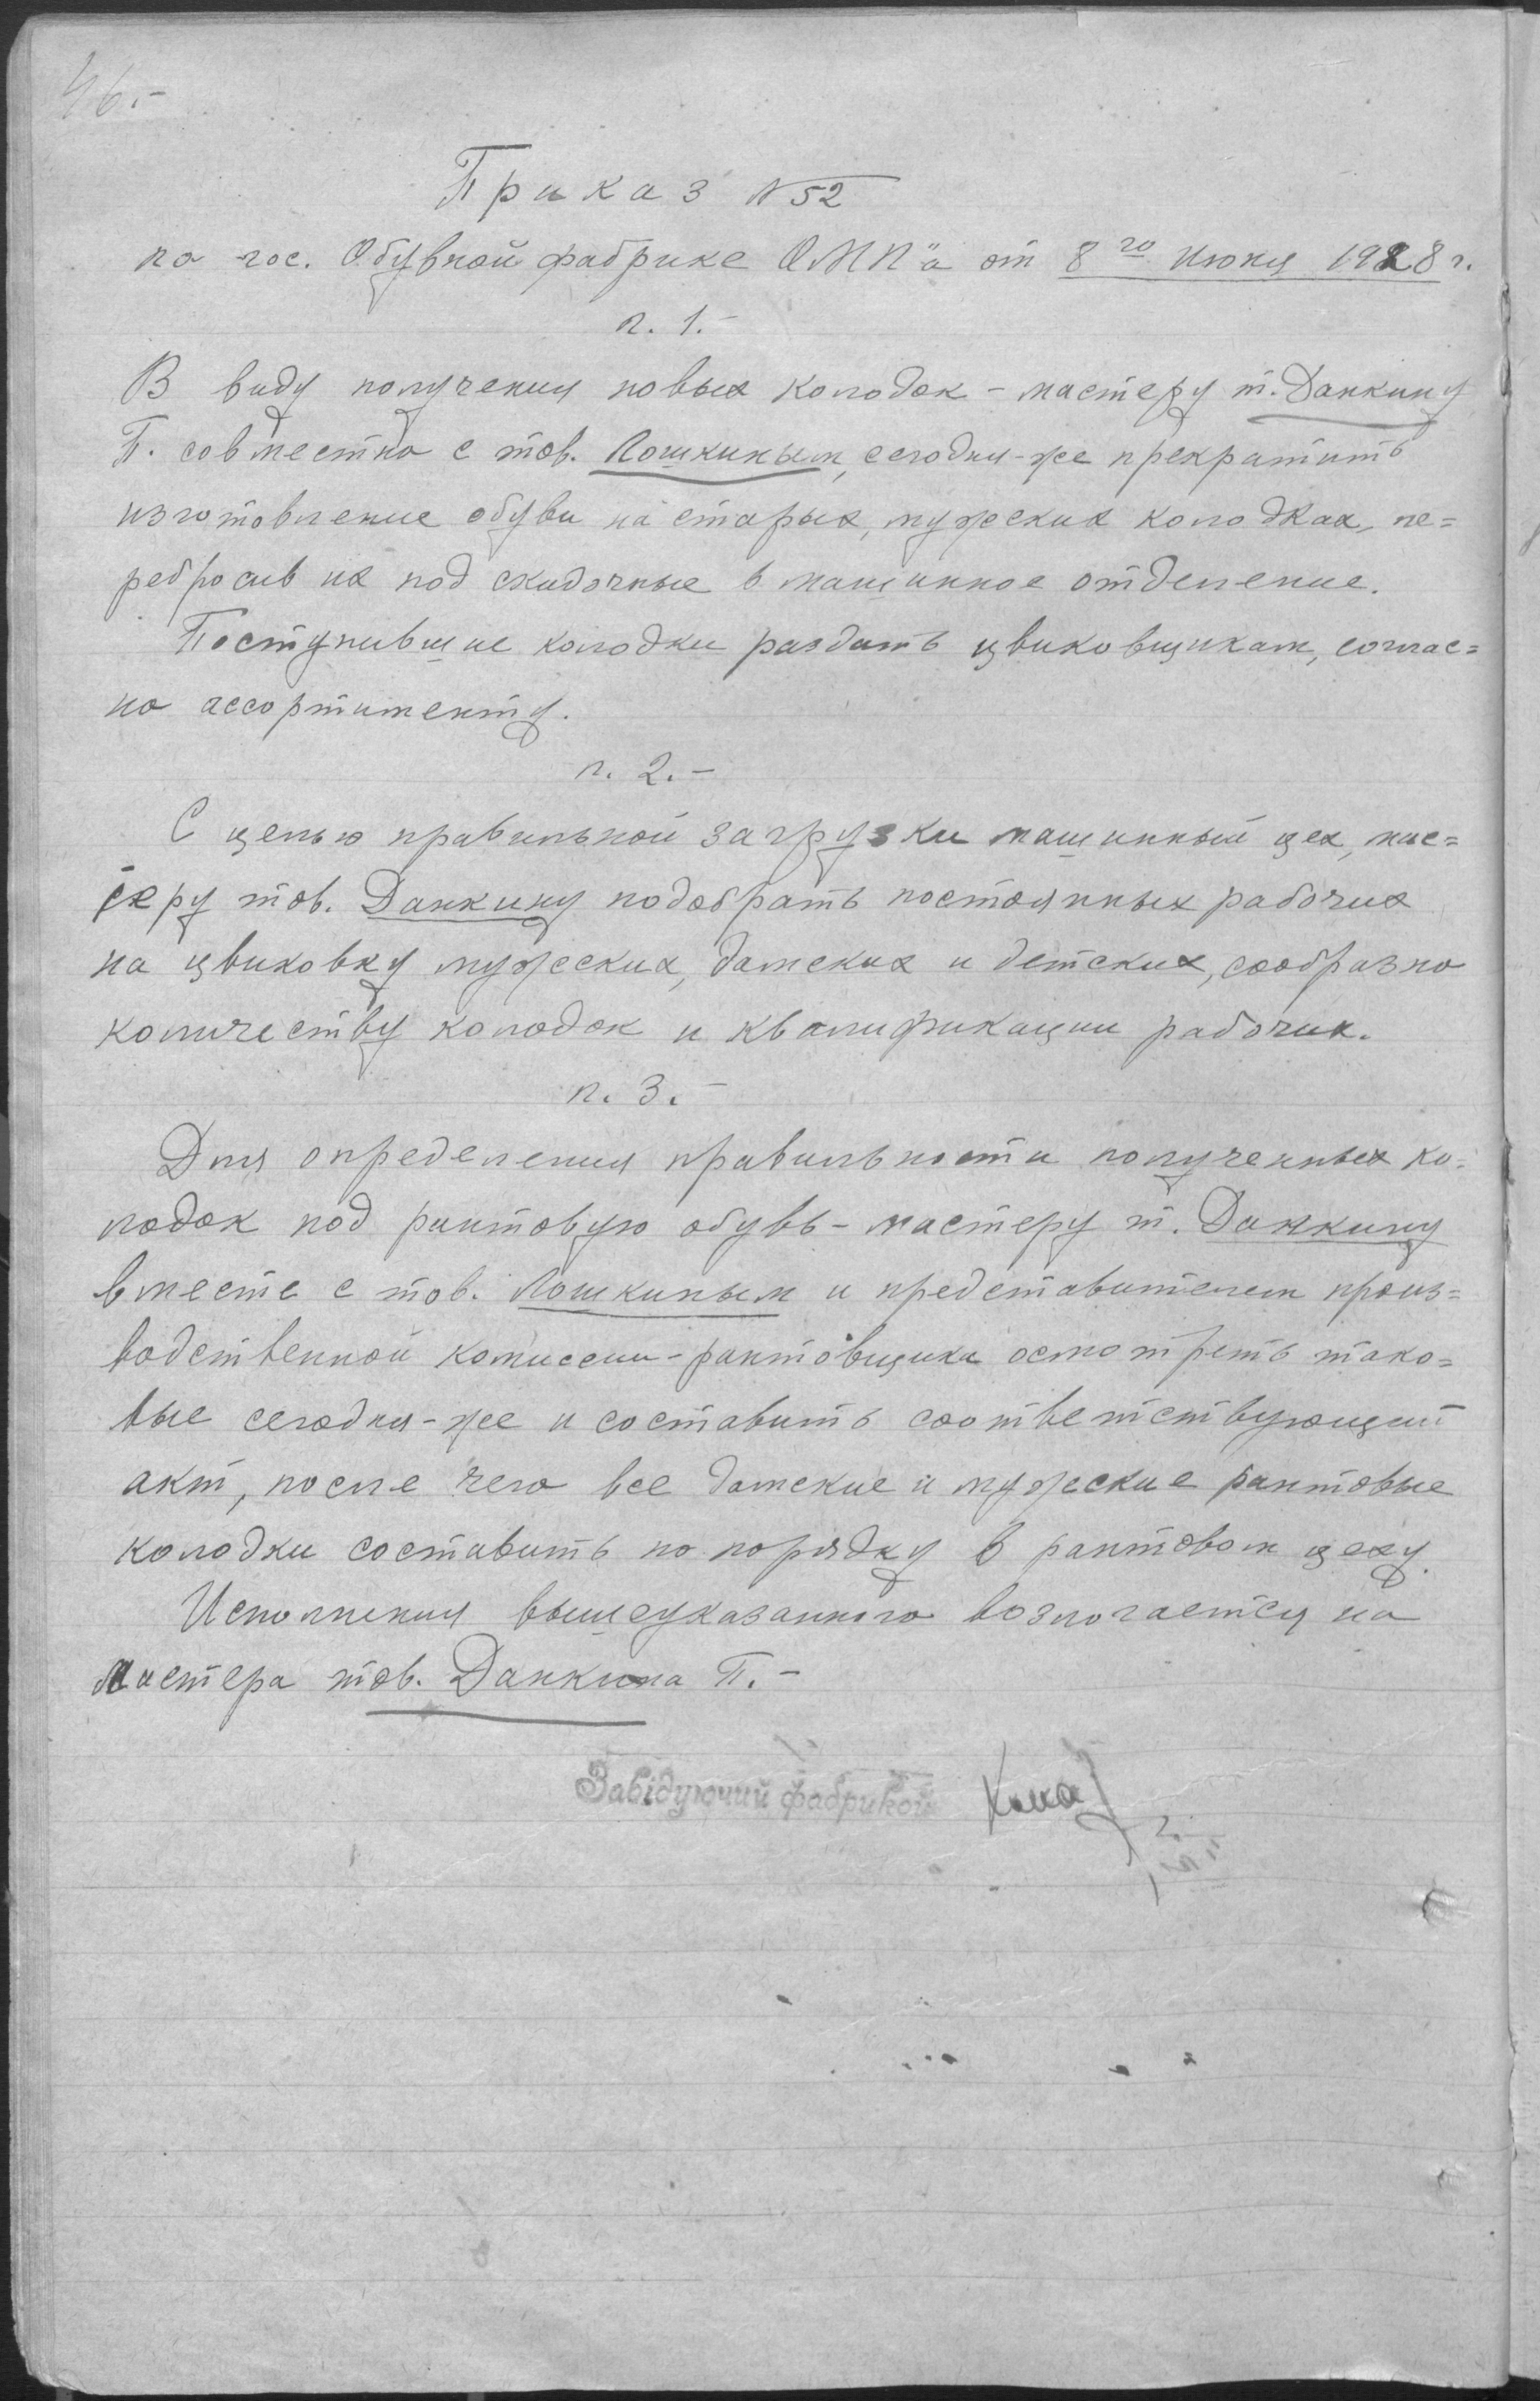 46.-
Приказ №52
по гос. Обувной фабрике ОМП"а от 8го Июня 1928 г.
п. 1.-
В виду получения новых колодок - мастеру т. Данкину
П. совместно с тов. Лошкиным, сегодня-же прекратить
изготовление обуви на старых, мужских колодках, пе=
ребросив их под скидочные в машинное отделение.
Поступившие колодки раздать цвиковщикам, соглас=
но ассортименту.
п. 2.-
С целью правильной загрузки машинный цех, мас=
теру тов. Данкину подобрать постоянных рабочих
на цвиковку мужских, дамских и детских, сообразно
количеству колодок и квалификации рабочих.
п. 3.-
Для определения правильности полученных ко=
лодок под рантовую обувь - мастеру т. Данкину
вместе с тов. Лошкиным и представителем произ=
водственной комиссии-рантовщика осмотреть тако=
вые сегодня-же и составить соответствующий
акт, после чего все дамские и мужские рантовые
колодки составить по порядку в рантовом цеху.
Исполнения вышеуказанного возлогается на
мастера тов. Данкина П.-
Завідуючий фабрикой